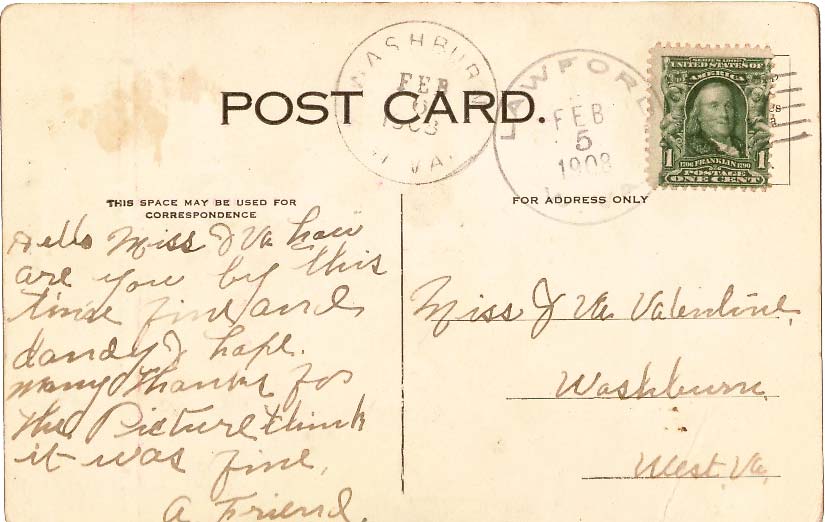 POST CARD.
WASHBURN
FEB
6
1908
W VA.
LAWFORD
FEB
5
1908
SERIES 1902
UNITED STATES OF
AMERICA
1706 FRANKLIN 1790
POSTAGE
1 ONE CENT 1
THIS SPACE MAY BE USED FOR
CORRESPONDENCE
Hello Miss I Va how
are you by this
time fine and
dandy I hope.
Many thanks for
the Picture think
it was fine,
A Friend.
FOR ADDRESS ONLY
Miss I Va Valentine,
Washburn,
West. Va,